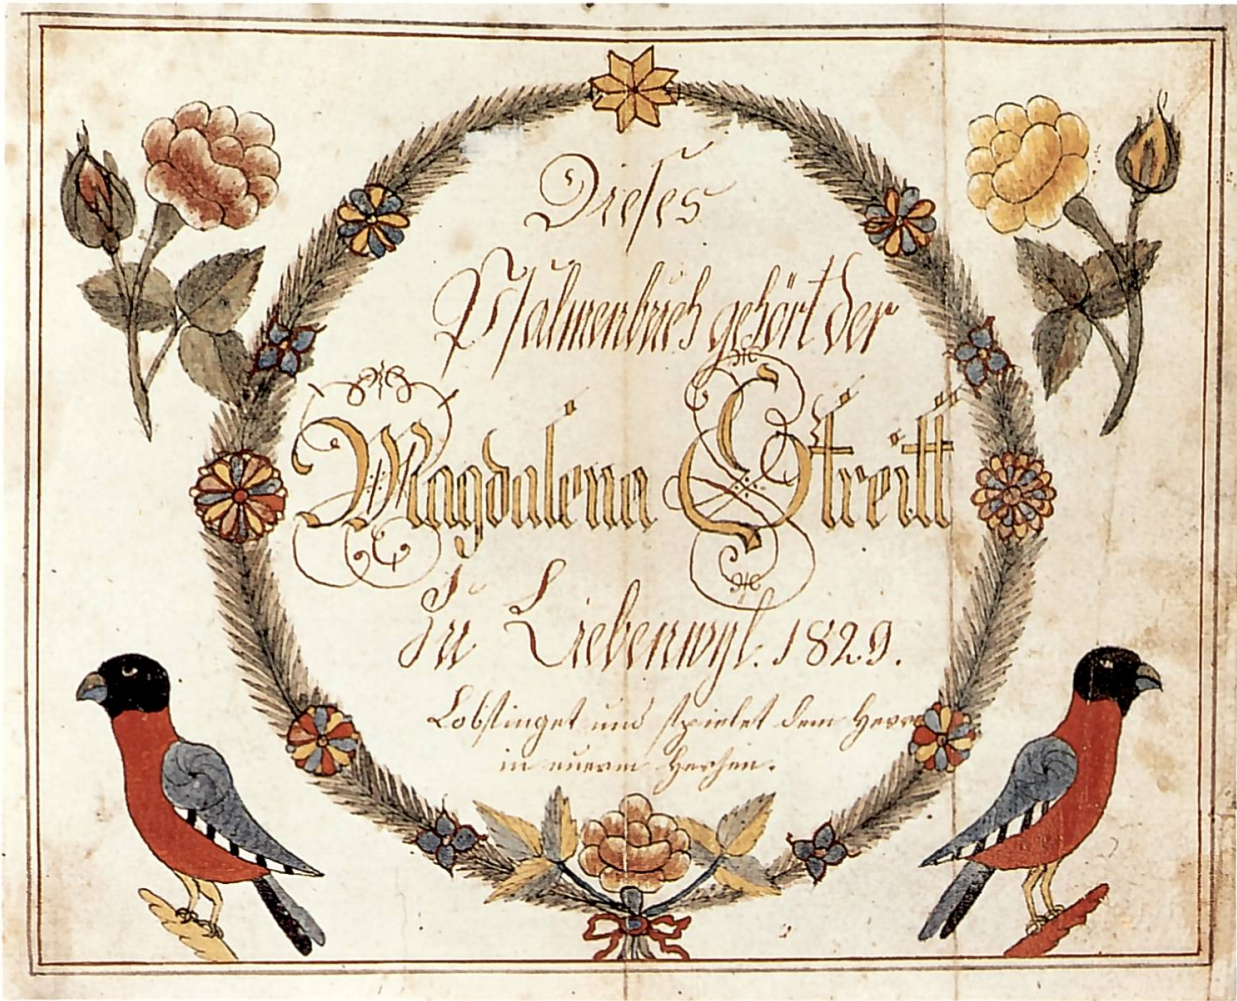 Dieses
Psalmenbuch gehört der
Magdalena Streitt
Zu Liebenwyl. 1829.
Lobsinget und spielet dem Herrn
in euerm Herzen.